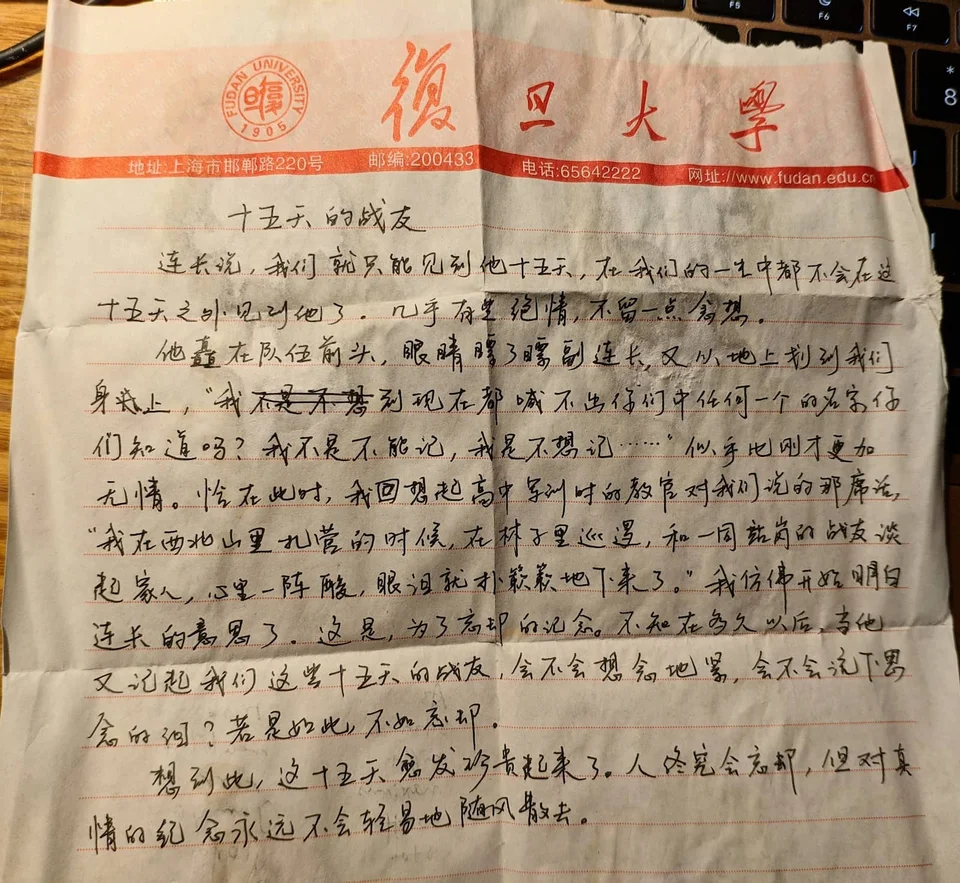 FUDAN UNIVERSITY
1905
復旦大學
地址:上海市邯郸路220号 邮编:200433 电话:65642222 网址://www.fudan.edu.cn
十五天的战友
连长说，我们就只能见到他十五天，在我们的一生中都不会在这
十五天之外见到他了。几乎有些绝情，不留一点念想。
他矗在队伍前头，眼睛瞟了瞟副连长，又从地上划到我们
身上，“我不是不想到现在都喊不出你们中任何一个的名字你
们知道吗？我不是不能记，我是不想记……”似乎比刚才更加
无情。恰在此时，我回想起高中军训时的教官对我们说的那席话，
“我在西北山里扎营的时候，在林子里巡逻，和一同站岗的战友谈
起家人，心里一阵酸，眼泪就扑簌簌地下来了。”我仿佛开始明白
连长的意思了。这是，为了忘却的记念。不知在多久以后，当他
又记起我们这些十五天的战友，会不会想念地紧，会不会流下思
念的泪？若是如此，不如忘却。
想到此，这十五天愈发珍贵起来了。人终究会忘却，但对真
情的纪念永远不会轻易地随风散去。
F5
F6
F7
*
8